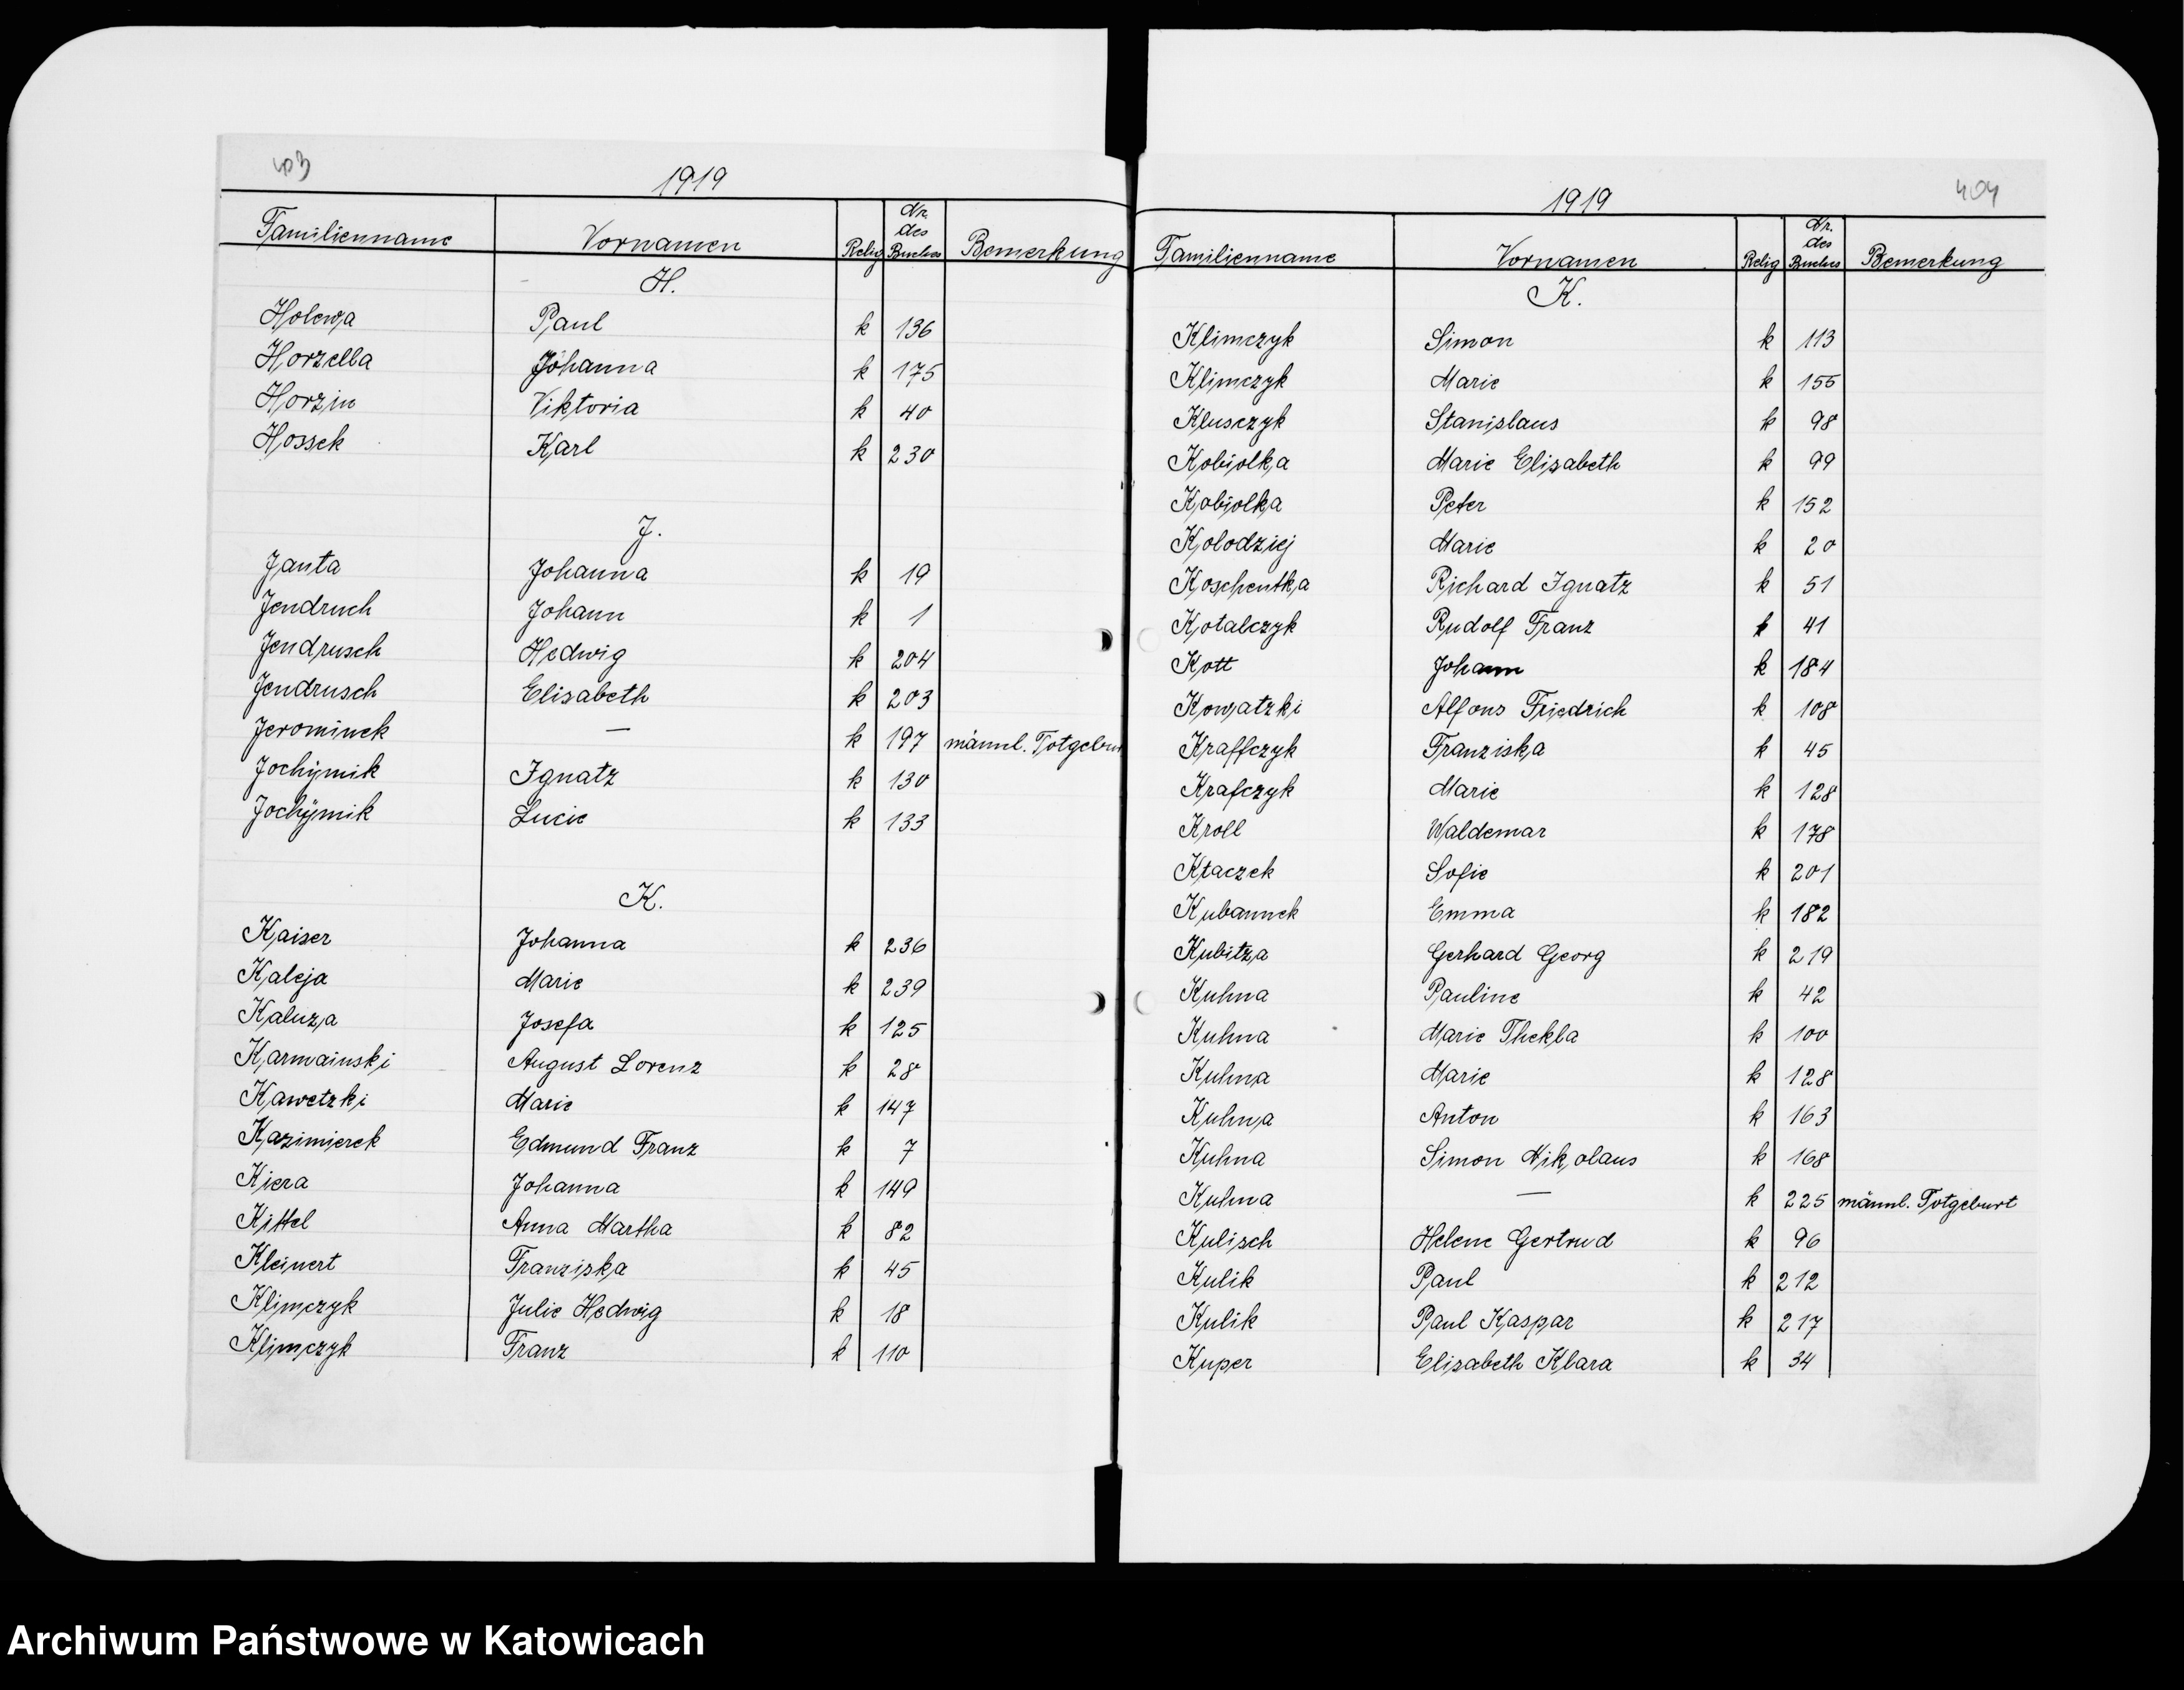 403
1919
Familienname Vornamen Relig Nr. des Buches Bemerkung
H.
Holewa Paul k 136
Horzella Johanna k 175
Horzin Viktoria k 40
Hossek Karl k 230
J.
Janta Johanna k 19
Jendruch Johann k 1
Jendrusch Hedwig k 204
Jendrusch Elisabeth k 203
Jerominek — k 197 männl. Totgeburt
Jochymik Ignatz k 130
Jochymik Lucie k 133
K.
Kaiser Johanna k 236
Kaleja Marie k 239
Kaluza Josefa k 125
Karmainski August Lorenz k 28
Kawetzki Marie k 147
Kazimierek Edmund Franz k 7
Kiera Johanna k 149
Kittel Anna Martha k 82
Kleinert Franziska k 45
Klimczyk Julie Hedwig k 18
Klimczyk Franz k 110
404
1919
Familienname Vornamen Relig Nr. des Buches Bemerkung
K.
Klimczyk Simon k 113
Klimczyk Marie k 155
Klusczyk Stanislaus k 98
Kobiolka Marie Elisabeth k 99
Kobiolka Peter k 152
Kolodziej Marie k 20
Koschentka Richard Ignatz k 51
Kotalczyk Rudolf Franz k 41
Kott Johann k 184
Kowatzki Alfons Friedrich k 108
Kraffczyk Franziska k 45
Krafczyk Marie k 128
Kroll Waldemar k 178
Ktaczek Sofie k 201
Kubannek Emma k 182
Kubitza Gerhard Georg k 219
Kuhna Pauline k 42
Kuhna Marie Thekla k 100
Kuhna Marie k 128
Kuhna Anton k 163
Kuhna Simon Nikolaus k 168
Kuhna — k 225 männl. Totgeburt
Kulisch Helene Gertrud k 96
Kulik Paul k 212
Kulik Paul Kaspar k 217
Kuper Elisabeth Klara k 34
Archiwum Państwowe w Katowicach